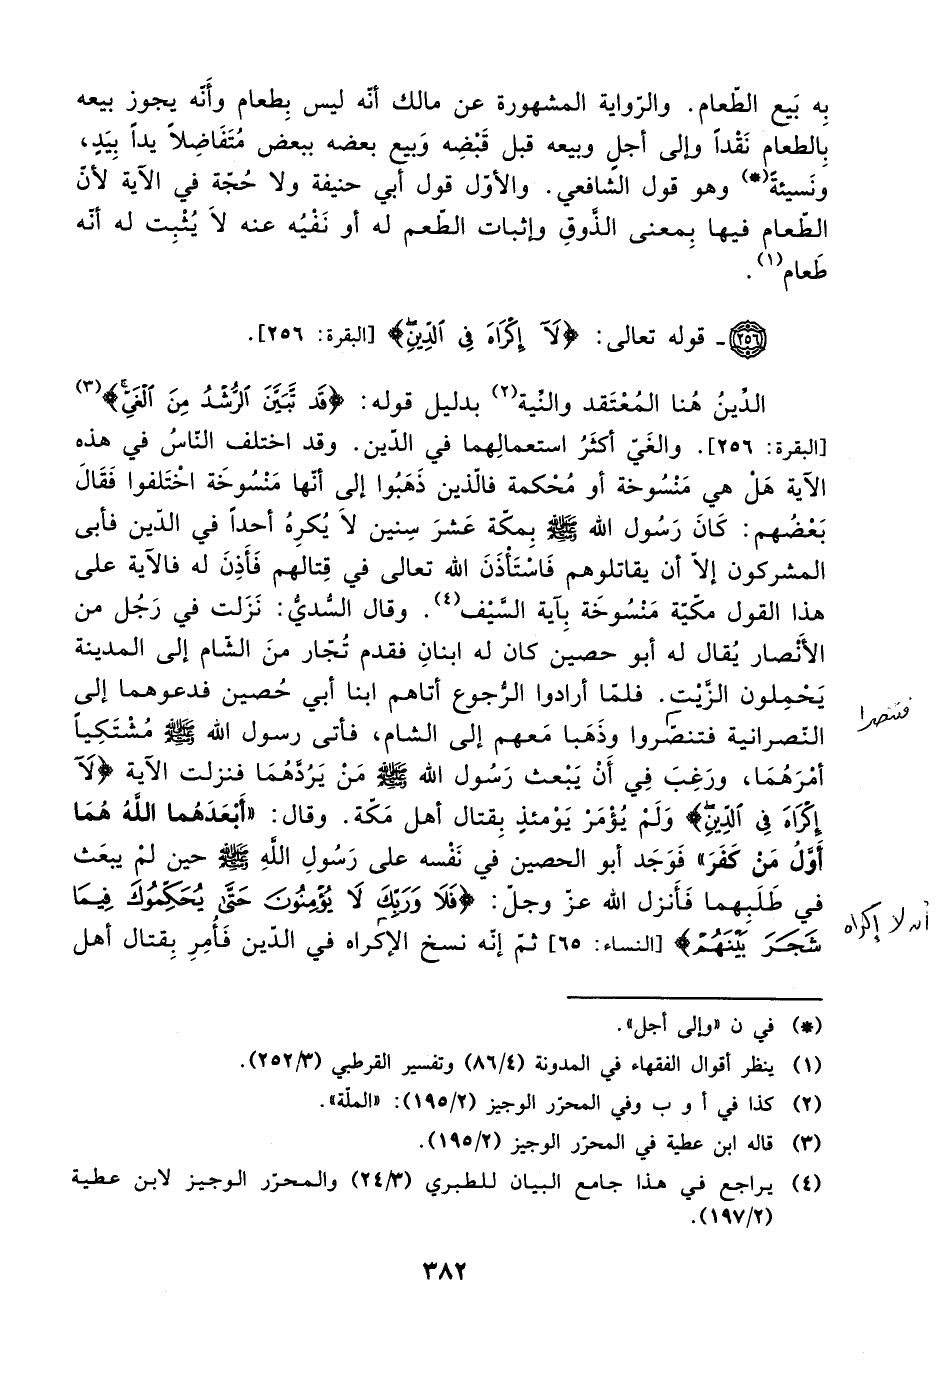 بِه بَيع الطّعام. والرّواية المشهورة عن مالك أنّه ليس بِطعام وأَنّه يجوز بيعه
بِالطعام نَقْداً وإلى أجلٍ وبيعه قبل قَبْضِه وَبيع بعضه ببعض مُتَفَاضِلاً يداً بِيَدٍ،
ونَسيئةً(*) وهو قول الشافعي. والأوّل قول أبي حنيفة ولا حُجّة في الآية لأنّ
الطّعام فيها بِمعنى الذَّوقِ وإثبات الطّعم له أو نَفْيُه عنه لاَ يُثْبِت له أنّه
طَعام(١).
(٢٥٦)ـ قوله تعالى: ﴿لَآ إِكْرَاهَ فِي ٱلدِّينِۖ﴾ [البقرة: ٢٥٦].
الدِّينُ هُنا المُعْتَقد والنِّية(٢) بدليل قوله: ﴿قَد تَّبَيَّنَ ٱلرُّشْدُ مِنَ ٱلْغَيِّۚ﴾(٣)
[البقرة: ٢٥٦]. والغَيّ أكثَرُ استعمالِهما في الدّين. وقد اختلف النّاسُ في هذه
الآية هَلْ هي مَنْسُوخة أو مُحْكمة فالّذين ذَهَبُوا إلى أنّها مَنْسُوخَة اخْتَلفوا فَقَالَ
بَعْضُهم: كَانَ رَسُول الله ﷺ بِمكّة عَشرَ سِنين لاَ يُكرِهُ أحداً في الدّين فأبى
المشركون إلاّ أن يقاتلوهم فَاسْتَأْذَنَ الله تعالى في قِتالهم فَأَذِنَ له فالآية على
هذا القول مكيّة مَنْسُوخَة بِآية السَّيْف(٤). وقال السُّديُّ: نَزَلت في رَجُل من
الأَنْصار يُقال له أبو حصين كان له ابنانِ فقدم تُجّار منَ الشّام إلى المدينة
يَحْمِلون الزَّيْت. فلمّا أرادوا الرُّجوع أتاهم ابنا أبي حُصين فدعوهما إلى
النّصرانية فتنصّروا وذَهَبا مَعهم إلى الشام، فأتى رسول الله ﷺ مُشْتَكِياً
فتنصرا
أمْرَهُمَا، ورَغِبَ فِي أَنْ يَبْعث رَسُول الله ﷺ مَنْ يَرُدَّهُمَا فنزلت الآية ﴿لَآ
إِكْرَاهَ فِي ٱلدِّينِۖ﴾ وَلَمْ يُؤْمَرْ يَوْمئذٍ بِقتال أهل مَكّة. وقال: «أَبْعَدَهُما اللَّهُ هُمَا
أَوَّلُ مَنْ كَفَرَ» فَوَجَد أبو الحصين في نَفْسه على رَسُولِ اللَّهِ ﷺ حين لمْ يبعَث
في طَلَبِهما فَأَنزل الله عزّ وجلّ: ﴿فَلَا وَرَبِّكَ لَا يُؤْمِنُونَ حَتَّىٰ يُحَكِّمُوكَ فِيمَا
شَجَرَ بَيْنَهُمْ﴾ [النساء: ٦٥] ثمّ إنّه نسخ الإكراه في الدّين فَأُمِرِ بِقتال أهل
أنه لا إكراه
(*) في ن «وإلى أجل».
(١) ينظر أقوال الفقهاء في المدونة (٨٦/٤) وتفسير القرطبي (٢٥٢/٣).
(٢) كذا في أ و ب وفي المحرّر الوجيز (١٩٥/٢): «الملّة».
(٣) قاله ابن عطية في المحرّر الوجيز (١٩٥/٢).
(٤) يراجع في هذا جامع البيان للطبري (٢٤/٣) والمحرّر الوجيز لابن عطية
(١٩٧/٢).
٣٨٢